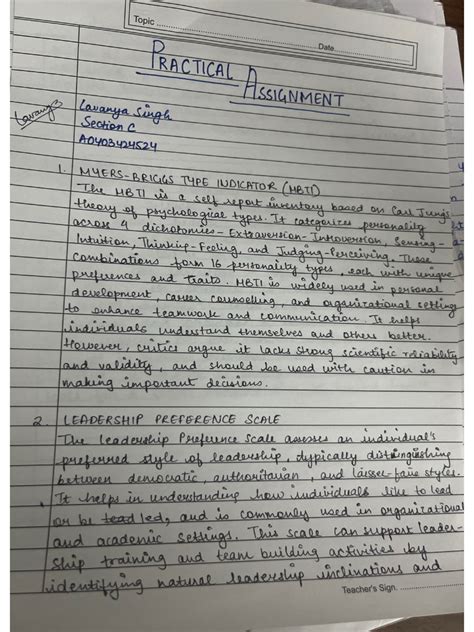 Topic
Date
PRACTICAL
ASSIGNMENT
Lavanya
Lavanya Singh
Section C
A0403424524
1. MYERS-BRIGGS TYPE INDICATOR (MBTI)
The MBTI is a self report inventory based on Carl Jung's
theory of psychological types. It categorizes personality
across 4 dichotomies - Extraversion-Introversion, Sensing-
Intuition, Thinking-Feeling, and Judging-Perceiving. These
combinations form 16 personality types, each with unique
preferences and traits. MBTI is widely used in personal
development, career counselling, and organizational settings
to enhance teamwork and communication. It helps
individuals understand themselves and others better.
However, critics argue it lacks strong scientific reliability
and validity, and should be used with caution in
making important decisions.
2. LEADERSHIP PREFERENCE SCALE
The Leadership Preference Scale assesses an individual's
preferred style of leadership, typically distinguishing
between democratic, authoritarian, and laissez-faire styles.
It helps in understanding how individuals like to lead
or be lead led, and is commonly used in organizational
and academic settings. This scale can support leader-
ship training and team building activities by
identifying natural leadership inclinations and
Teacher's Sign.